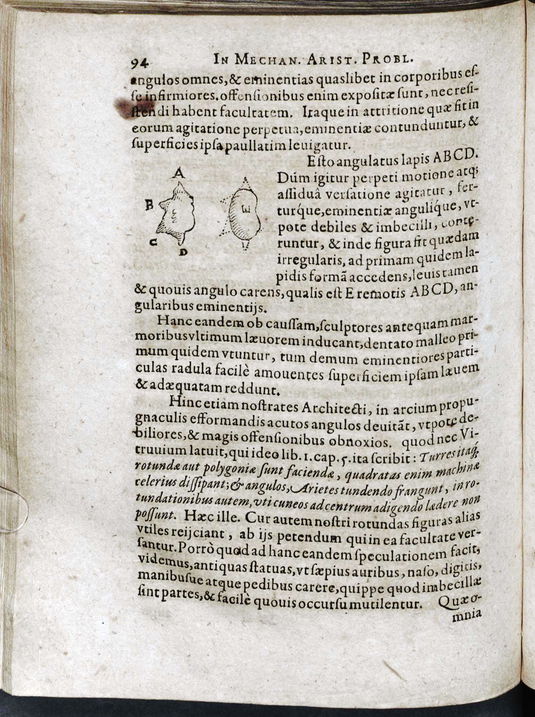 94 IN MECHAN. ARIST. PROBL.
angulos omnes, & eminentias quaslibet in corporibus eſ-
ſe infirmiores. offenſionibus enim expoſitæ ſunt, nec reſi-
ſtendi habent facultatem. Itaque in attritione quæ fit in
eorum agitatione perpetua, eminentiæ contunduntur, &
ſuperficies ipſa paullatim leuigatur.
Eſto angulatus lapis ABCD.
Dúm igitur perpeti motione atq;
aſſiduâ verſatione agitatur, fer-
turque, eminentiæ angulique, vt-
pote debiles & imbecilli, conte-
runtur, & inde figura fit quædam
irregularis, ad primam quidem la-
pidis formã accedens, leuis tamen
& quouis angulo carens, qualis eſt E remotis ABCD, an-
gularibus eminentijs.
A
B
C
D
E
Hanc eandem ob cauſſam, ſculptores antequam mar-
moribus vltimum læuorem inducant, dentato malleo pri-
mum quidem vtuntur, tum demum eminentiores parti-
culas radula facilè amouentes ſuperficiem ipſam læuem
& adæquatam reddunt.
Hinc etiam noſtrates Architecti, in arcium propu-
gnaculis efformandis acutos angulos deuitãt, vtpote de-
biliores, & magis offenſionibus obnoxios. quod nec Vi-
truuium latuit, qui ideo lib. 1. cap. 5. ita ſcribit: Turres itaq;
rotundæ aut polygoniæ ſunt faciendæ, quadratas enim machinæ
celerius diſſipant; & angulos, Arietes tundendo frangunt, in ro-
tundationibus autem, vti cuneos ad centrum adigendo lædere non
poſſunt. Hæc ille. Cur autem noſtri rotundas figuras alias
vtiles reijciant, ab ijs petendum qui in ea facultate ver-
ſantur. Porrò quod ad hanc eandem ſpeculationem facit,
videmus, antiquas ſtatuas, vt ſæpius auribus, naſo, digitis,
manibuſue atque pedibus carere, quippe quod imbecillæ
ſint partes, & facilè quouis occurſu mutilentur. Quæ o-
mnia